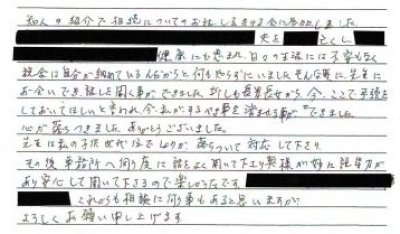 知人の紹介で相続についてのお話しをさせる会に参加しました。
夫を 亡くし、
健康にも恵まれ、日々の生活には不安もなく
税金は自分が納めているんだからと何も知らずにいました そんな時に、先生に
お会いでき話しを聞く事ができました 折しも長男長女から、今、ここで手続を
しておいてほしいと言われ、今、私がするべき事を済ませる事ができました
心が落ちつきました ありがとうございました。
先生は私の子供世代位でしょうが、落ちついて対応して下さり
その後 事務所へ伺う度に話をよく聞いて下さり奥様が特に
あり安心して聞いて下さるので楽しかったです
これからも相談に伺う事もあると思いますが、
よろしくお願い申し上げます